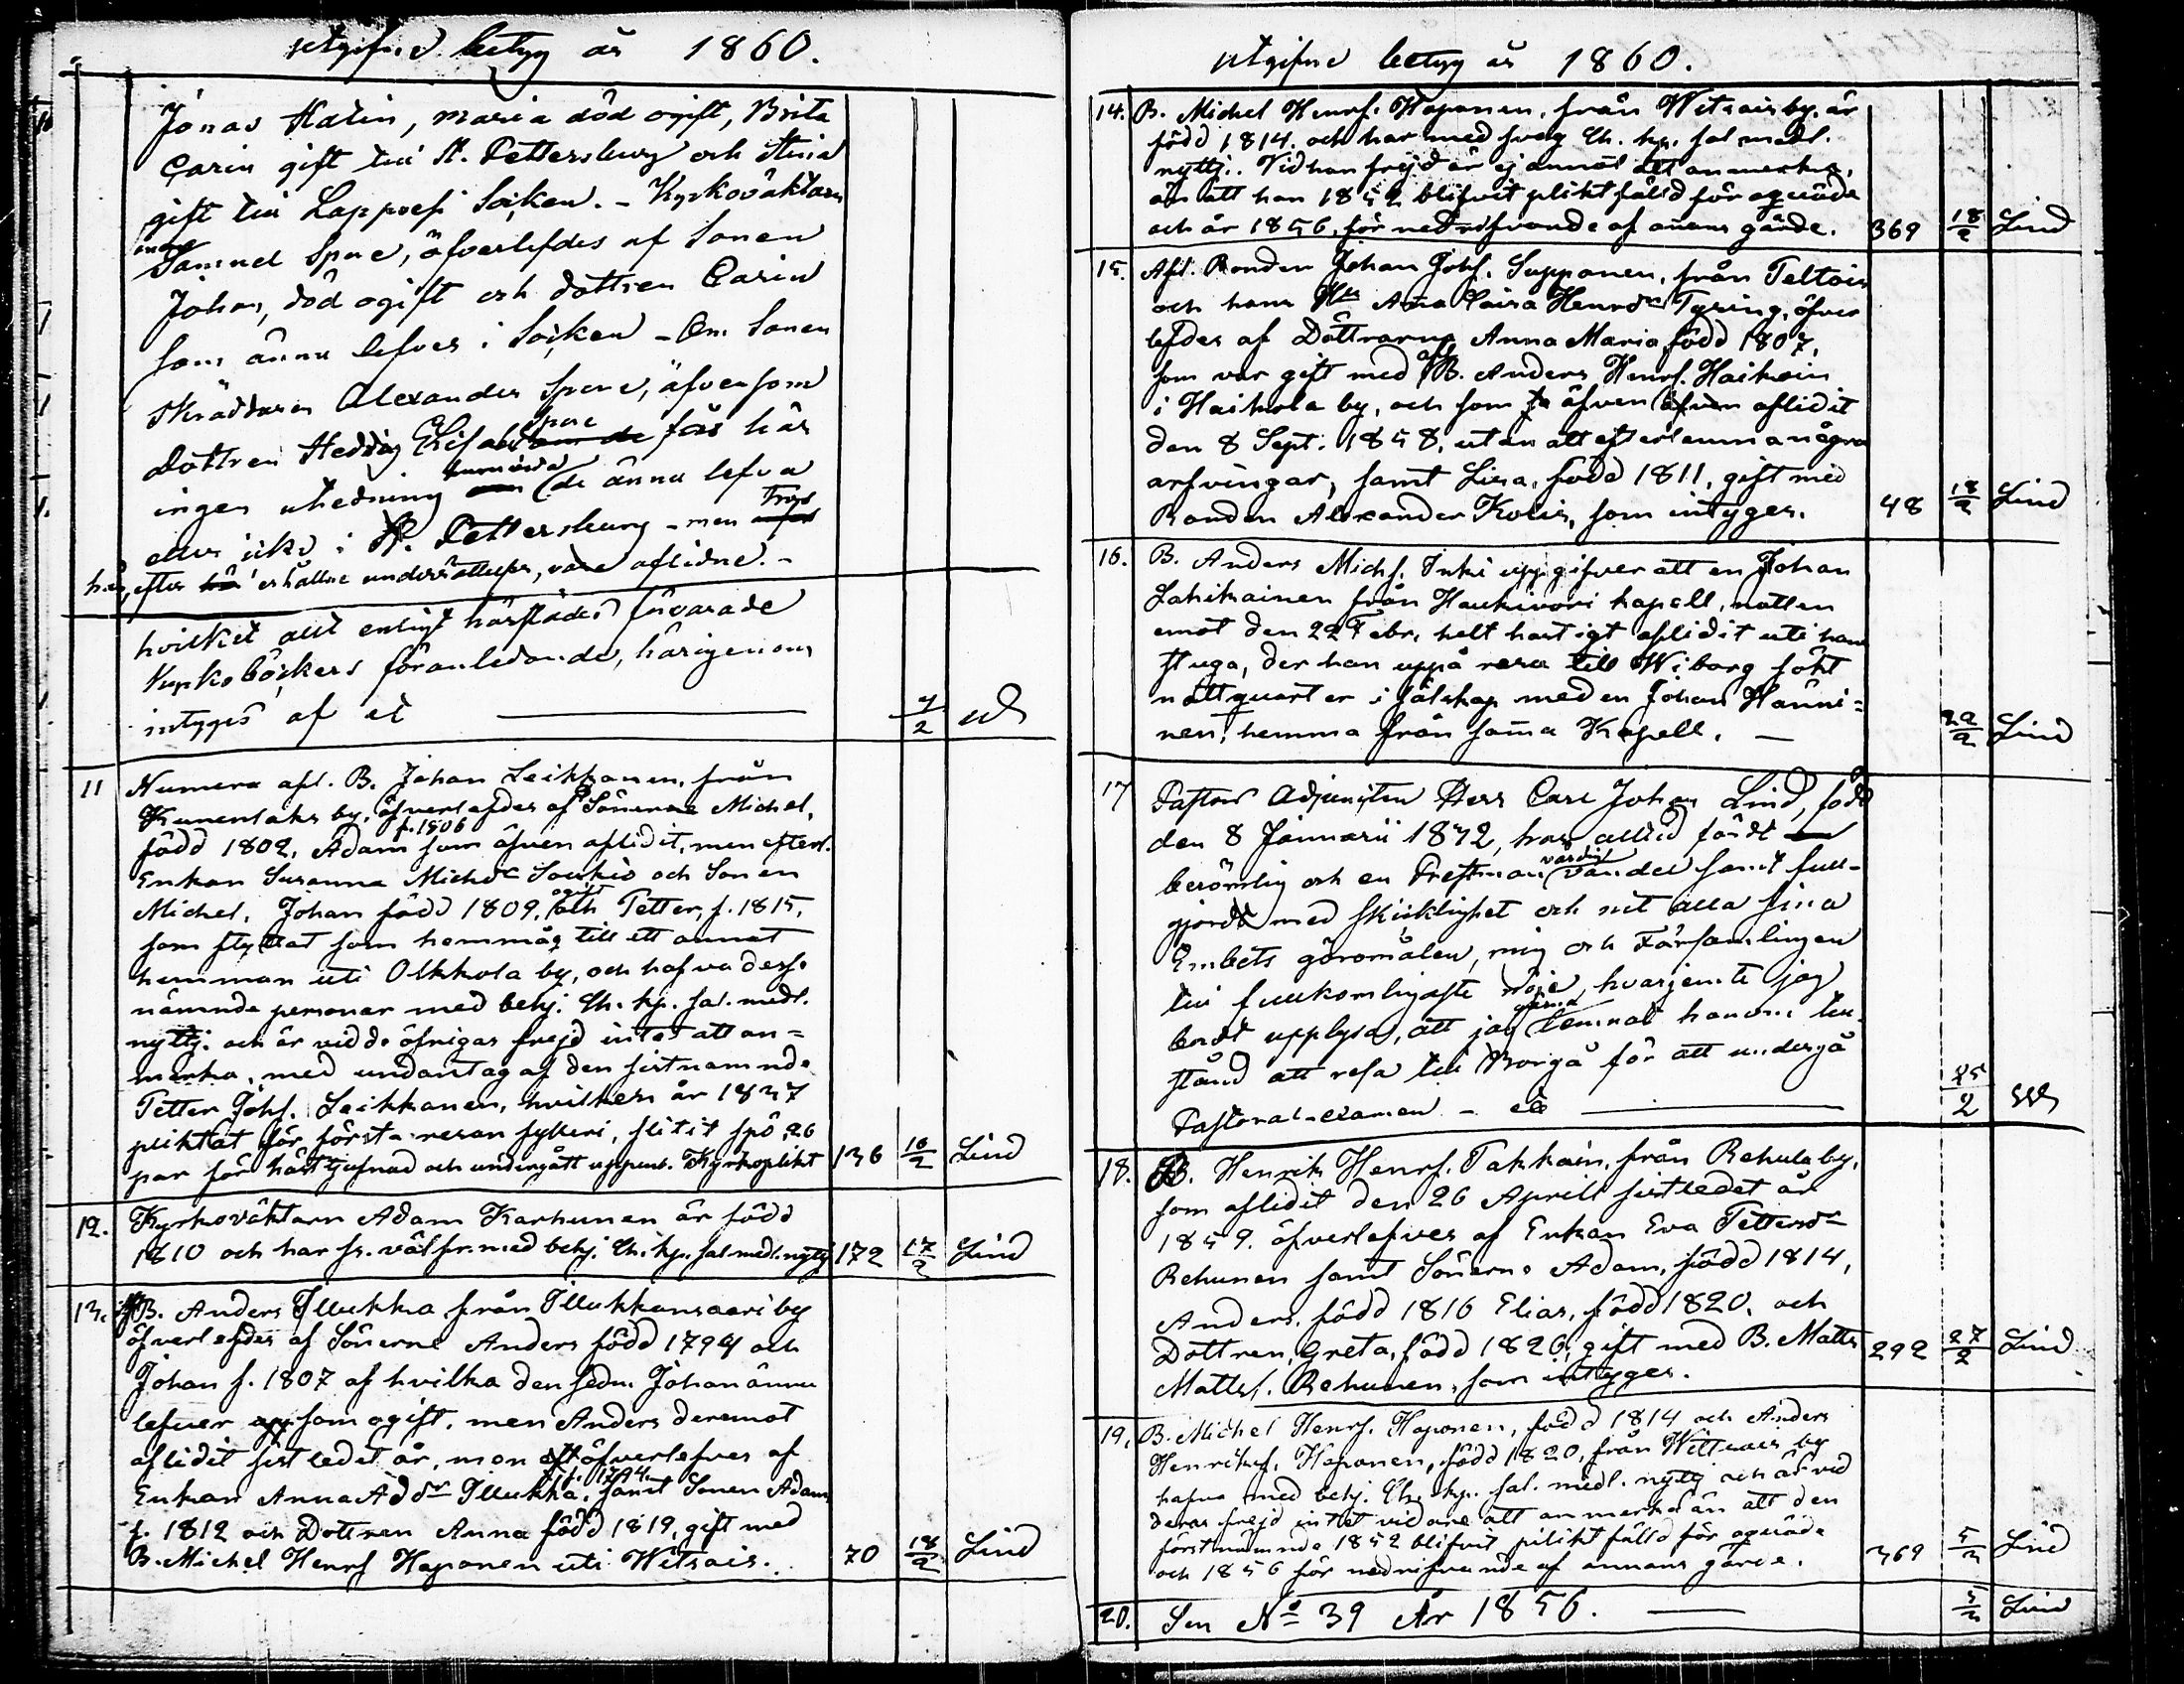 utgifne betyg år 1860.
Jonas Malin, Maria död ogift, Brita
Carin gift till St. Pettersburg och Stina
gift till Lappvesi Soken. - Kyrkoväktaren
Samuel Spore, öfverlefdes af Sonen
Johan, död ogift och dottren Carin
som ännu lefver i Soken - Om Sonen
Skräddaren Alexander Spore, äfvensom
dottren Hedvig Elisabet Spore fås här
ingen utredning huruvida de ännu lefva
eller icke i St. Pettersburg - men
här, efter erhållne underrättelser, vara aflidne. -
hvilket allt enligt härstädes förvarade
Kyrkoböckers föranledande, härigenom
intygas af etc 7/2
11 Numera afl. B. Johan Leikkanen, från
Kunenlaks by, öfverlefdes af Sönerne Michel,
född 1802, Adam f. 1806 som äfven aflidit, men efterl.
Enkan Susanna Michsdr Soukio och Sonen
Michel, Johan född 1809, ogift och Petter, f. 1815,
som flyttat som hemmåg till ett annat
hemman uti Olkkola by, och hafva desse
nämnde personer med behj. Ch. kp. sal. medl.
nyttj. och är vid de öfrigas frejd intet att an=
merka, med undantag af den sistnamnde
Petter Johs. Leikkanen, hvilken år 1837
pliktat för första resan fylleri, slitit spö 26
par för hästtjufnad och undergått uppenb. Kyrkoplikt 136 16/2 Lind
12. Kyrkoväktarn Adam Karhunen är född
1810 och har fr. väl fr. med behj. Ch. kp. sal. medl. nyttj 172 17/2 Lind
13. B. Anders Illukka från Illukkansaari by
öfverlefdes af Sönerne Anders född 1794 och
Johan f. 1807 af hvilka den sedn. Johan ännu
lefver som ogift, men Anders deremot
aflidit sist ledet år, men öfverlefves af
Enkan Anna Addr Illukka, f. 1794. samt Sonen Adam
f. 1812 och Dottren Anna född 1819, gift med
B. Michel Henrs Haponen uti Witsais. 70 18/2 Lind
utgifne betyg år 1860.
14. B. Michel Henrs. Haponen, från Witsais by, är
född 1814. och har med svag Ch. kp. sal. medl.
nyttj. Vid han frejd är ej annat att anmerka,
än att han 1852 blifvit pliktfälld för oqväde
och år 1856, för nedrifvande af annans gärde. 369 18/2 Lind
15. Afl. Bonden Johan Johs. Supponen, från Teltois
och hans Hu Anna Caisa Henrsdr Tyring, öfver
lefdes af Döttrarne Anna Maria, född 1807,
som var gift med afl B. Anders Henrs. Haikoin
i Haikola by, och som äfven aflidit
den 8 Sept. 1858, utan att efterlemna några
arfvingar, samt Lisa, född 1811, gift med
Bonden Alexander Kolis, som intyges. 48 18/2 Lind
16. B. Anders Michs. Inki uppgifver att en Johan
Lahikainen från Haukivori kapell, natten
emot den 22 Febr, helt hastigt aflidit uti hans
stuga, der han uppå resa till Wiborg sökt
nattquarter i sälskap med en Johan Hänni=
nen, hemma från samma Kapell. - 22/2 Lind
17 Pastors Adjuncten Herr Carl Johan Lind, född
den 8 Januarii 1832, har alltid fördt
berömlig och en Prestman värdig vandel samt full-
gjordt med skicklighet och nit alla sina
Embets göromålen, mig och Församlingen
till fullkomligaste nöje, hvarjemte jag
bordt upplysa, att jag gerna lemnat honom till-
stånd att resa till Borgå för att undergå
Pastoral-examen - etc 25/2
18. B. Henrik Henrs. Takkoin, från Rehula by,
som aflidit den 26 Aprill sistledet år
1859. öfverlefves af Enkan Eva Pettersdr
Rehunen samt Sönerne Adam, född 1814,
Anders, född 1816 Elias, född 1820, och
Dottren, Greta, född 1826, gift med B. Matts
Mattss. Rehunen, som intyges. 292 27/2 Lind
19. B. Michel Henrs. Haponen, född 1814 och Anders
Henrikss. Haponen, född 1820, från Wittsais by
hafva med behj. Ch. kp. sal. medl. nyttj och är vid
deras frejd intet vidare att anmerka än att den
förstnämnde 1852 blifvit pliktfälld för oqväde
och 1856 för nedrifvande af annans gärde. 369 5/3 Lind
20. Sen No 39 År 1856. 5/3 Lind